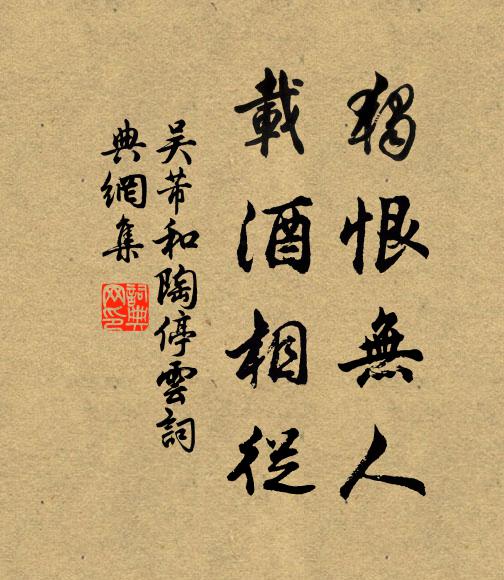 獨恨無人
載酒相從
吴芾和陶停雲詞
典網集
詞典网印